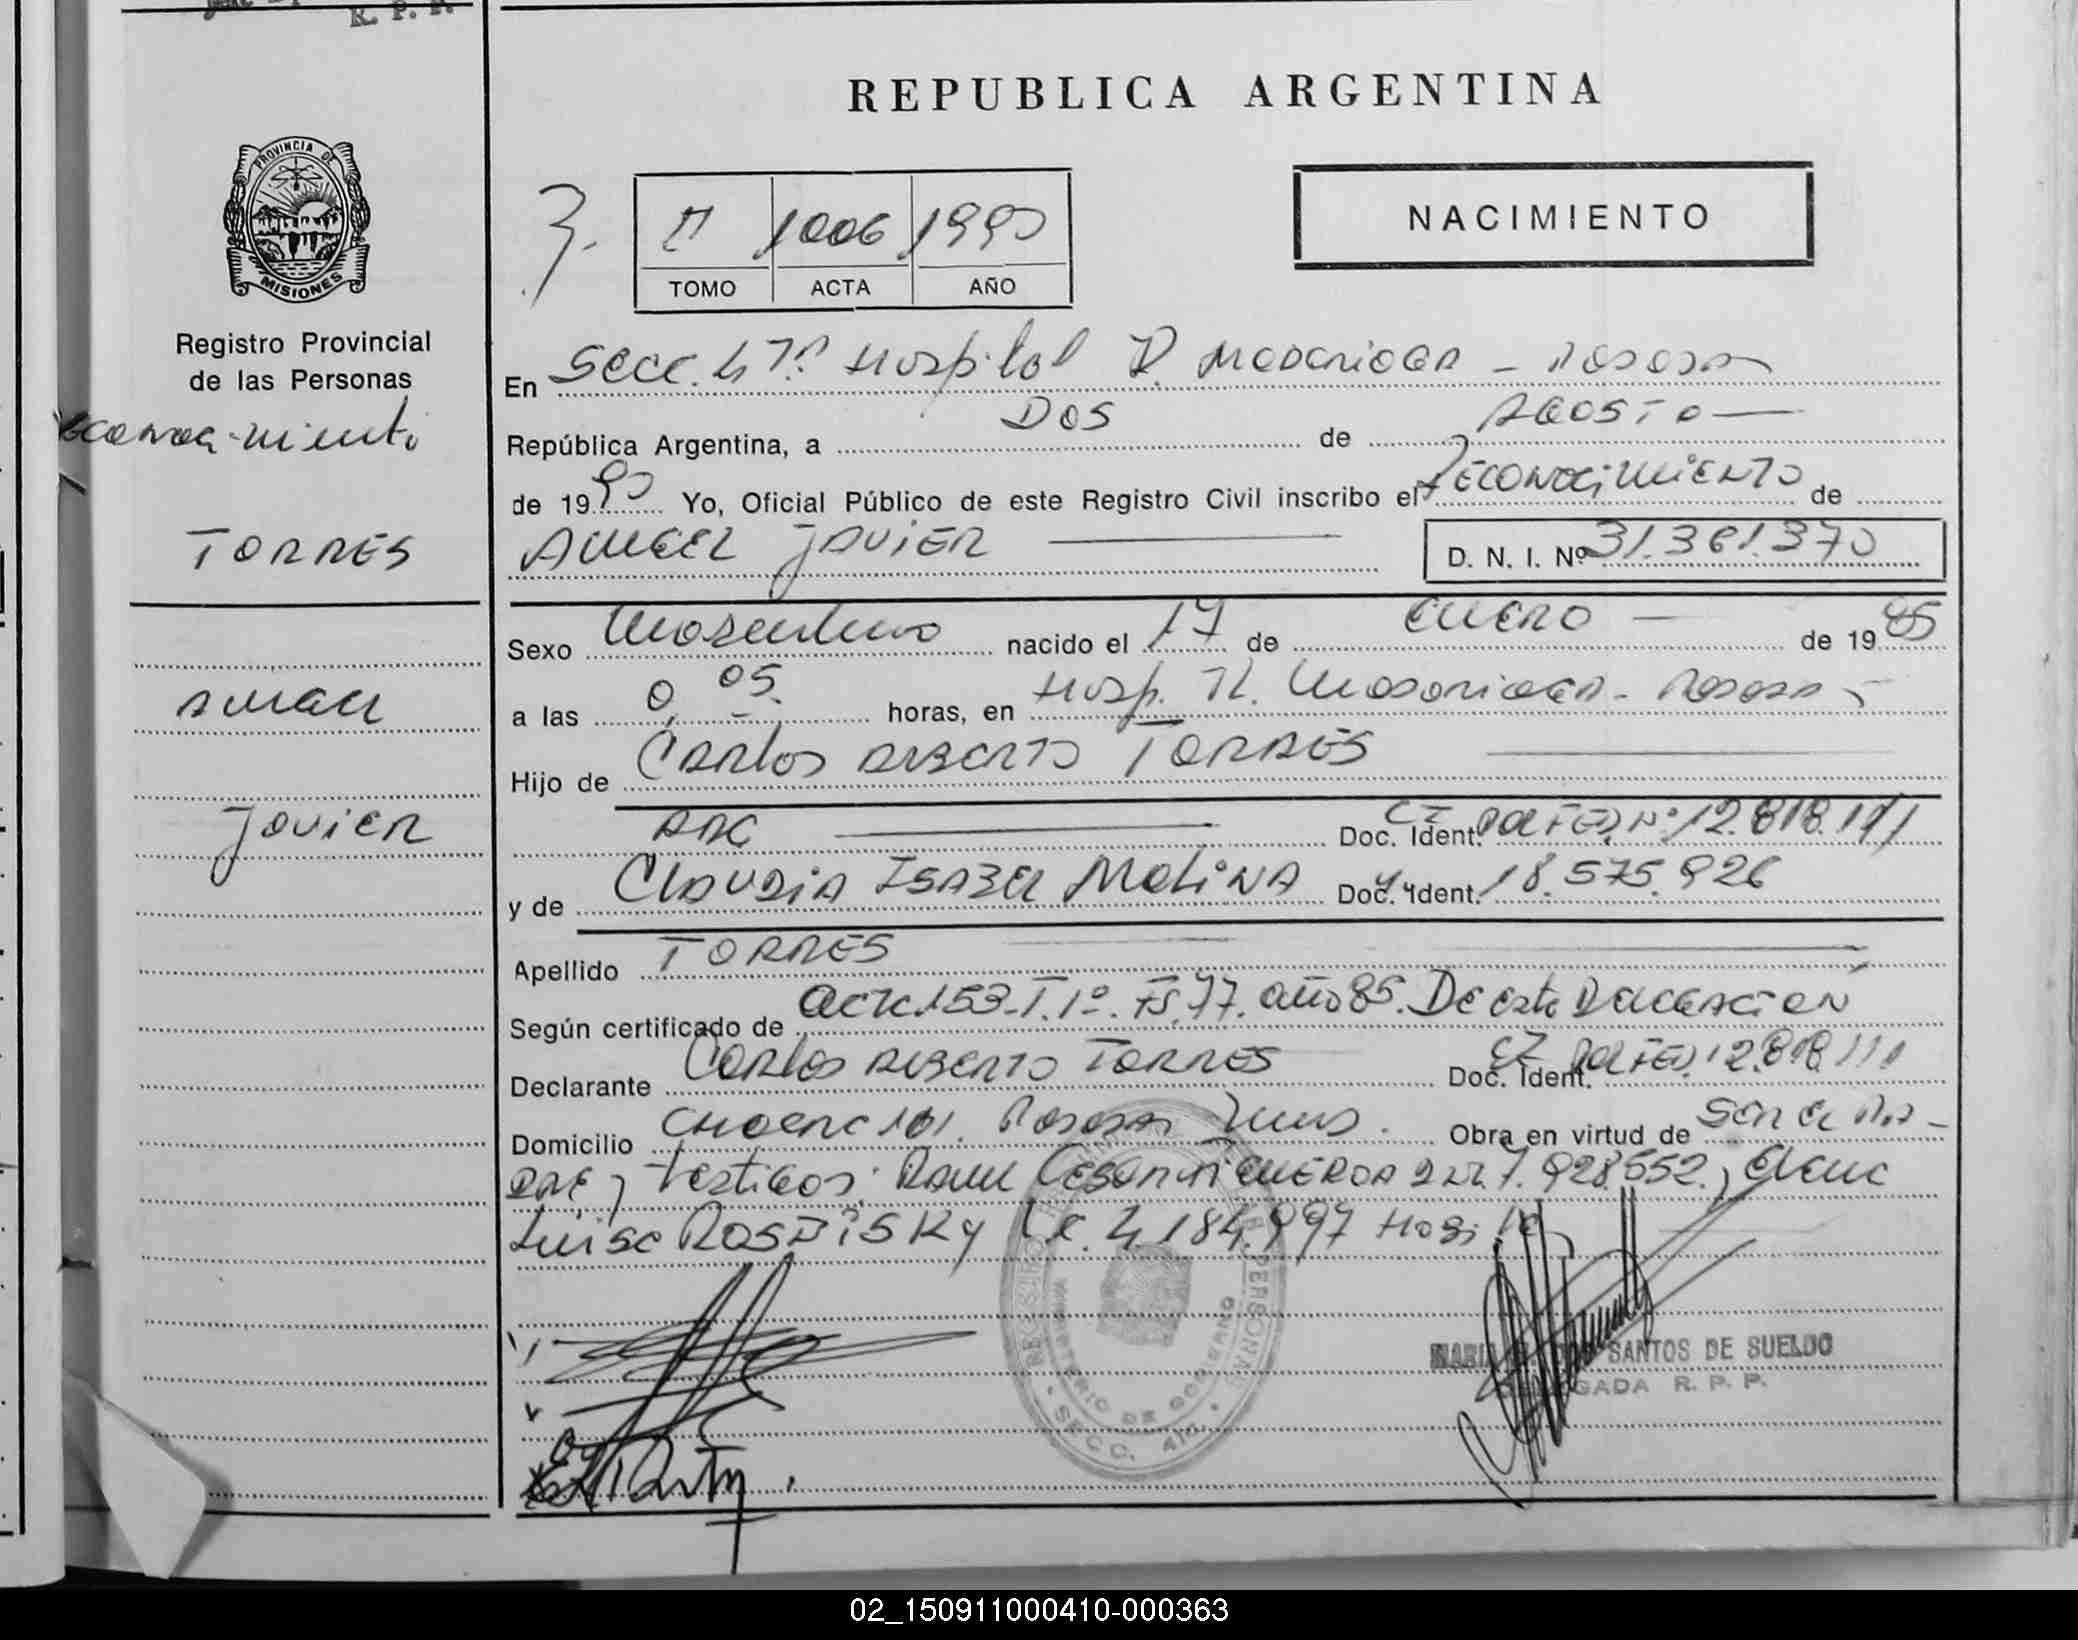 R. P. P.
REPUBLICA ARGENTINA
PROVINCIA DE
MISIONES
Registro Provincial
de las Personas
NACIMIENTO
II 1006 1990
TOMO ACTA AÑO
En Secc. 47ª Hospital R. Madariaga - Posadas
República Argentina, a DOS de AGOSTO
de 1990 Yo, Oficial Público de este Registro Civil inscribo el Reconocimiento de
ANGEL JAVIER D. N. I. Nº 31.361.370
Reconocimiento
TORRES
Angel
Javier
Sexo Masculino nacido el 17 de ENERO de 1985
a las 0,05 horas, en Hosp. R. Madariaga - Posadas
Hijo de Carlos Alberto TORRES
ARG Doc. Ident. CI POL FED. Nº 12.818.111
y de Claudia Isabel Molina Doc. Ident. 18.575.926
Apellido TORRES
Según certificado de Acta 153-T.1º-Fs.77. año 85. De esta Delegación
Declarante Carlos Alberto Torres Doc. Ident. CI Pol FED. 12.818.111
Domicilio Posadas Obra en virtud de Ser el Pa-
dre y testigos: Raul Cesar Figueroa 7.928.552, Elena
Luisa L.C. 4.184.997
REGISTRO PERSONAS
MINISTERIO DE GOBIERNO
SECC.
SANTOS DE SUELDO
DELEGADA R. P. P.
02_150911000410-000363